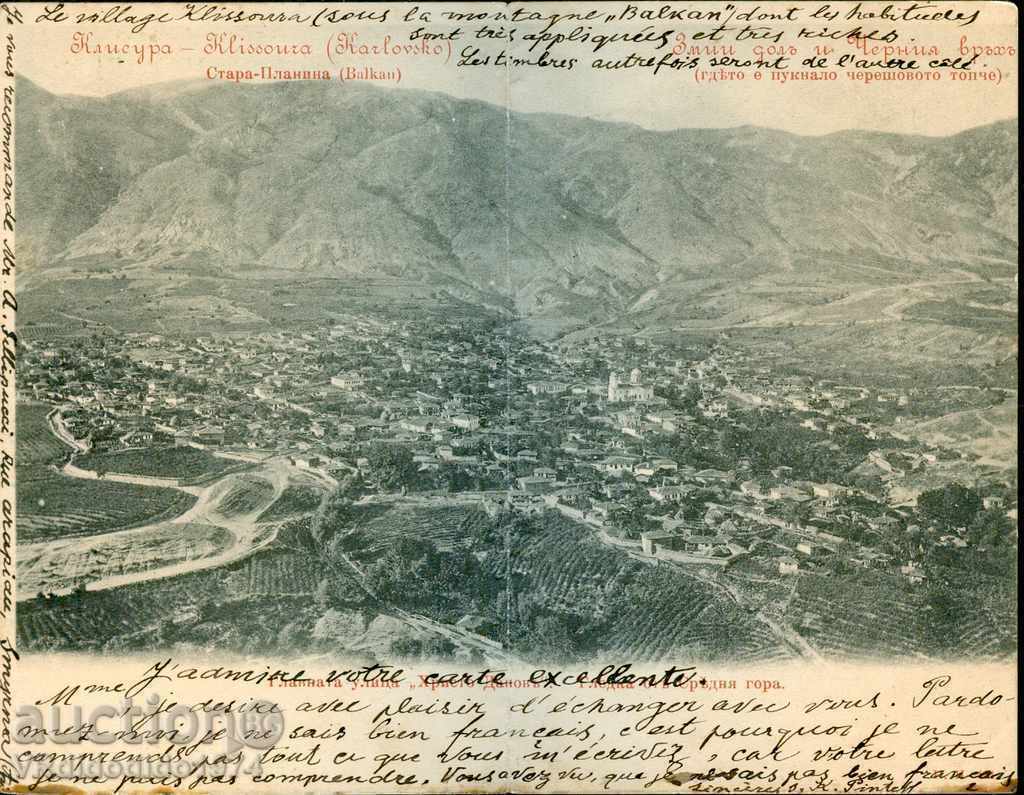 Le village Klissoura (sous la montagne „Balkan") dont les habitudes
sont très appliquées et très riches.
Les timbres autrefois seront de l'autre côté.
Клисура – Klissoura (Karlovsko)
Стара-Планина (Balkan)
Змии долъ и Черния връхъ
(гдѣто е пукнало черешовото топче)
Je vous recommande Mr. A.
Rue arapian, Smyrna
J'admire votre carte excellente.
Главната улица „Христо Дановъ". Гледка отъ Срѣдня гора.
Mme, je desire avec plaisir d'échanger avec vous. Pardo-
nnez moi je ne sais bien français, c'est pourquoi je ne
comprends pas tout ce que vous m'écrivez, car votre lettre
je ne puis pas comprendre. Vous avez vu, que je ne sais pas bien français
auction.bg